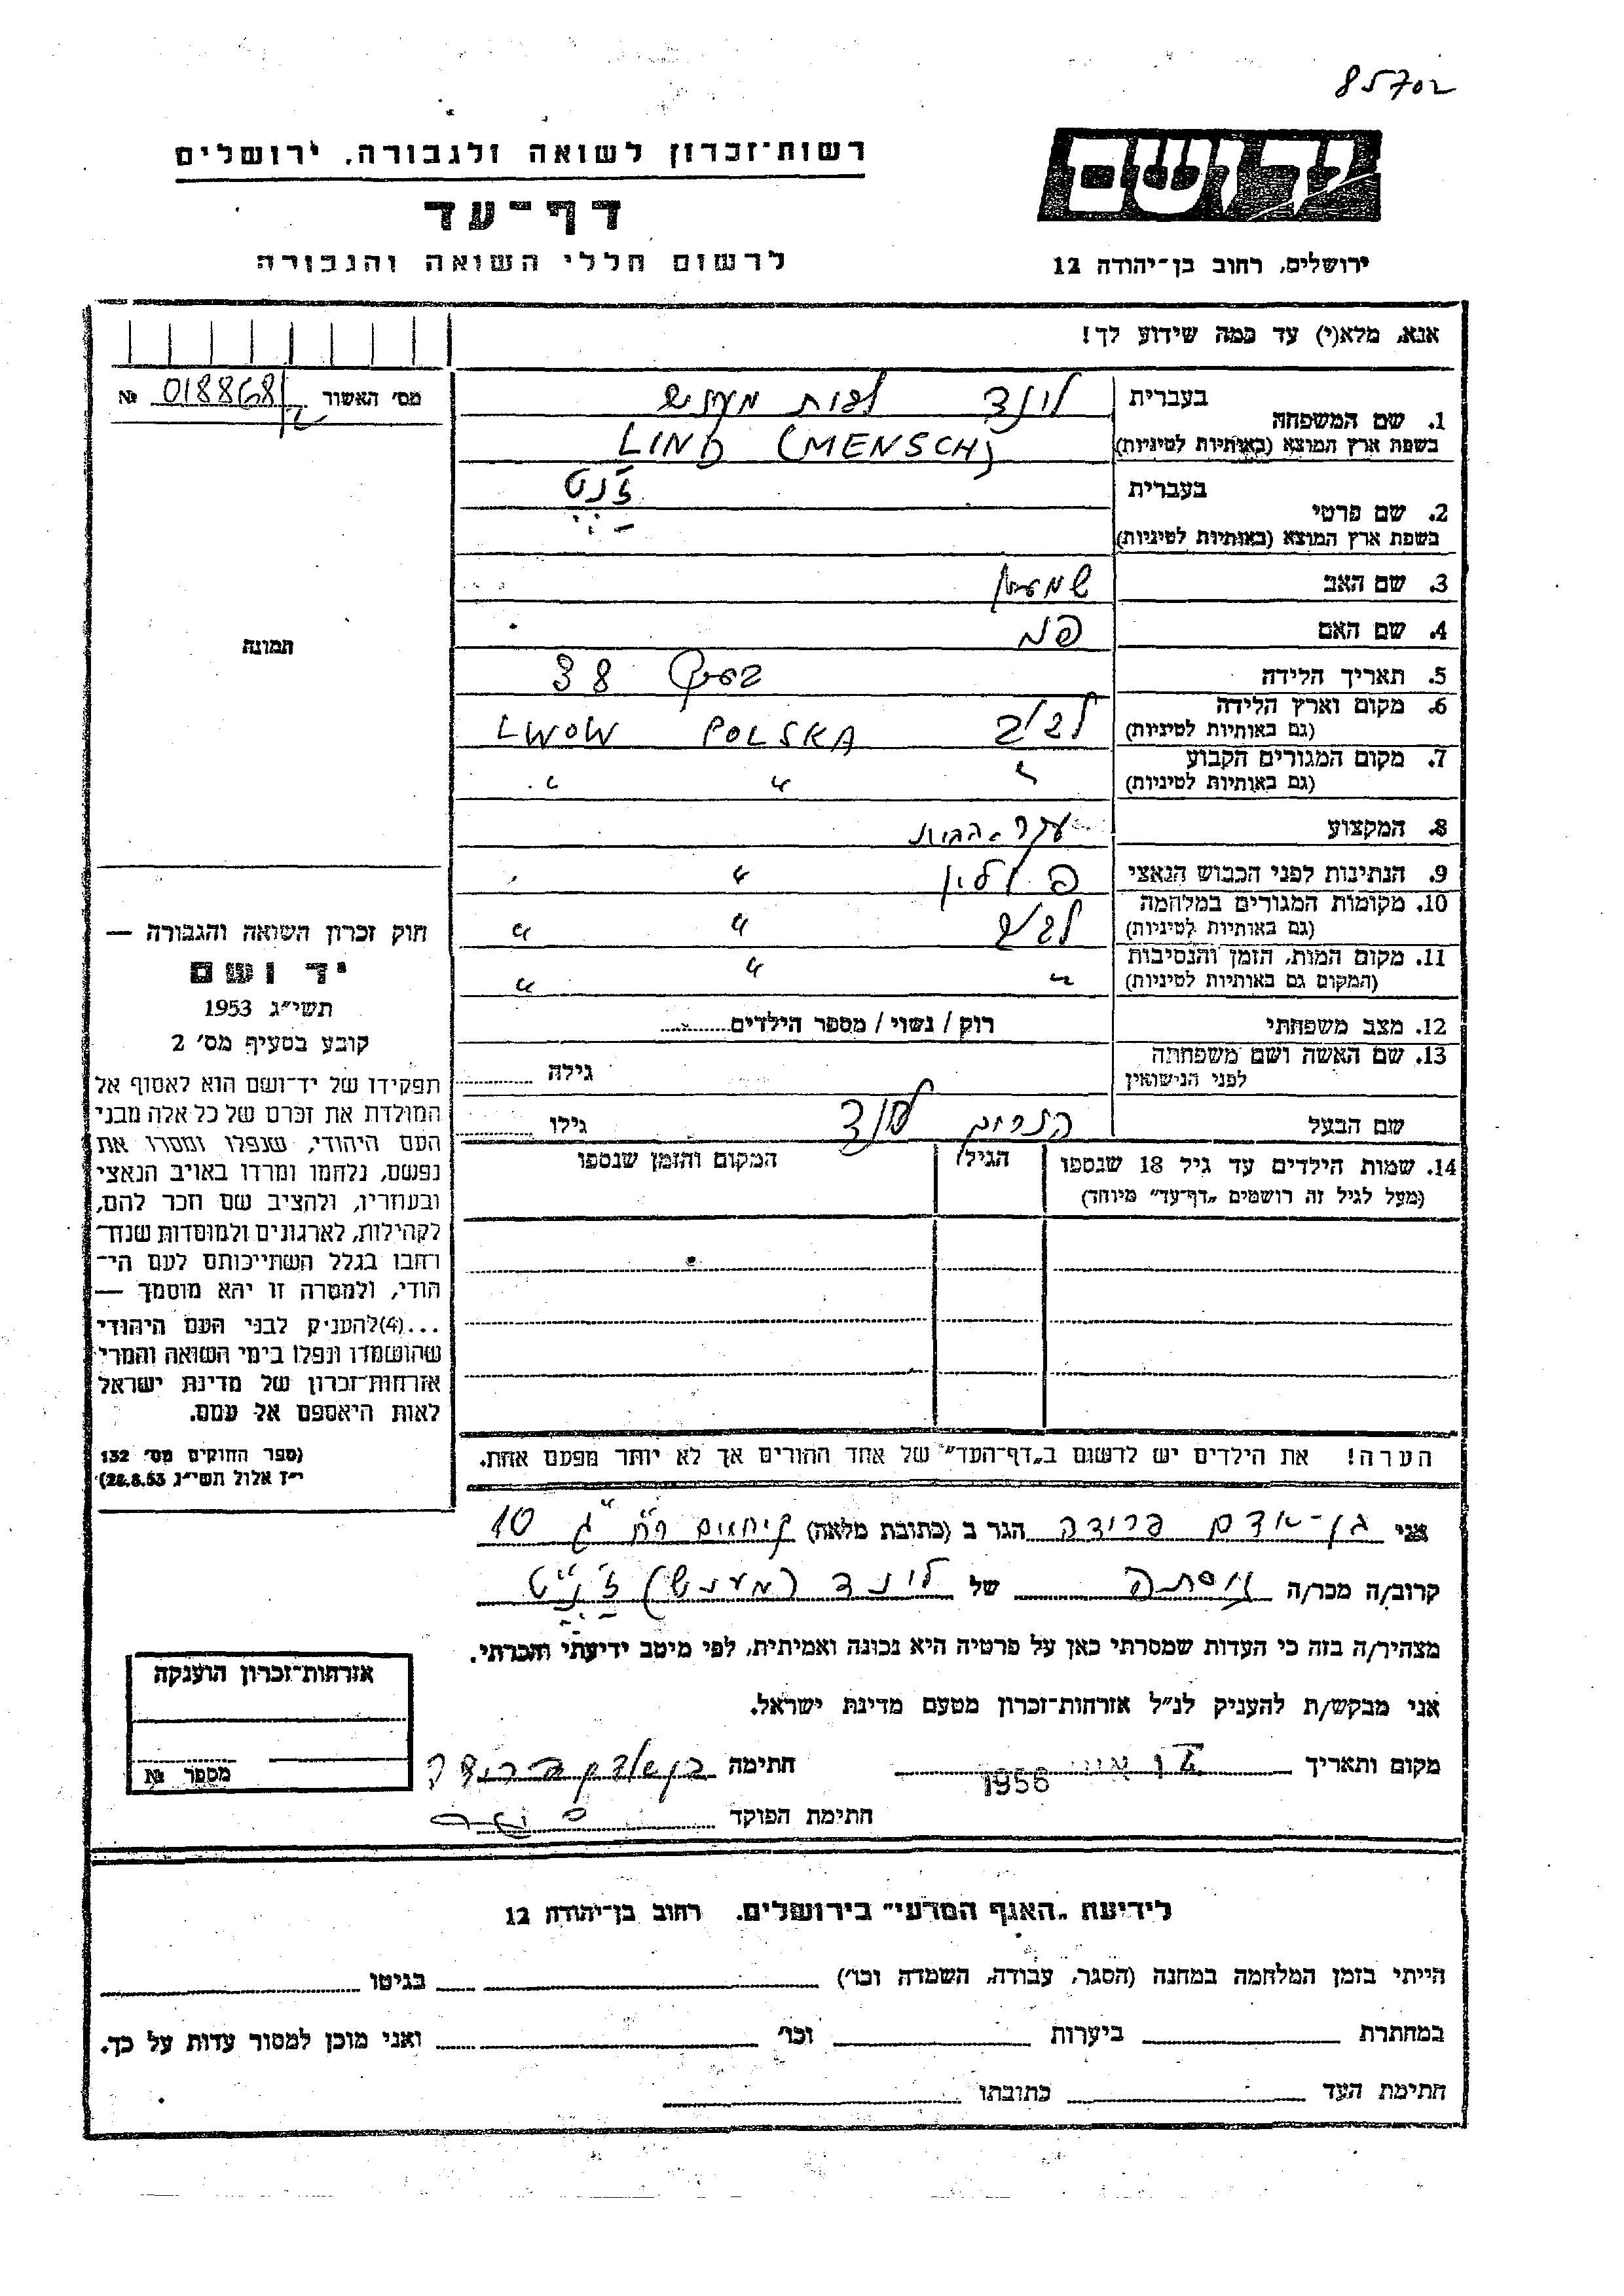 85702
יד ושם
רשות־זכרון לשואה ולגבורה, ירושלים
דף־עד
לרשום חללי השואה והגבורה
ירושלים, רחוב בן־יהודה 12
אנא, מלא(י) עד כמה שידוע לך!
מס' האשור № 018868
1. שם המשפחה
בעברית לינד לבית מענש
בשפת ארץ המוצא (באותיות לטיניות) LIND (MENSCH)
2. שם פרטי
בעברית ז'נט
בשפת ארץ המוצא (באותיות לטיניות)
3. שם האב שמעון
4. שם האם
5. תאריך הלידה 38
6. מקום וארץ הלידה
(גם באותיות לטיניות) לבוב POLSKA LWOW
7. מקום המגורים הקבוע
(גם באותיות לטיניות) " " "
8. המקצוע עקרת בית
9. הנתינות לפני הכבוש הנאצי פולין "
10. מקומות המגורים במלחמה
(גם באותיות לטיניות) לבוב " "
11. מקום המות, הזמן והנסיבות
(המקום גם באותיות לטיניות) " " "
12. מצב משפחתי רוק / נשוי / מספר הילדים
13. שם האשה ושם משפחתה
לפני הנישואין גילה
שם הבעל לינד גילו
14. שמות הילדים עד גיל 18 שנספו הגיל המקום והזמן שנספו
(מעל לגיל זה רושמים „דף־עד” מיוחד)
הערה! את הילדים יש לרשום ב„דף־העד” של אחד ההורים אך לא יותר מפעם אחת.
תמונה
חוק זכרון השואה והגבורה —
יד ושם
תשי״ג 1953
קובע בסעיף מס' 2
תפקידו של יד־ושם הוא לאסוף אל
המולדת את זכרם של כל אלה מבני
העם היהודי, שנפלו ומסרו את
נפשם, נלחמו ומרדו באויב הנאצי
ובעוזריו, ולהציב שם וזכר להם,
לקהילות, לארגונים ולמוסדות שנח־
רחבו בגלל השתייכותם לעם הי־
הודי, ולמטרה זו יהא מוסמך —
...(4)להעניק לבני העם היהודי
שהושמדו ונפלו בימי השואה והמרי
אזרחות־זכרון של מדינת ישראל
לאות היאספם אל עמם.
(ספר החוקים מס' 132
י״ז אלול תשי״ג 28.8.53)
אני בן־אדם פרידה הגר ב (כתובת מלאה) 10
קרוב/ה מכר/ה גיסתה של לינד (מענש) ז'נט
מצהיר/ה בזה כי העדות שמסרתי כאן על פרטיה היא נכונה ואמיתית, לפי מיטב ידיעתי והכרתי.
אני מבקש/ת להעניק לנ״ל אזרחות־זכרון מטעם מדינת ישראל.
מקום ותאריך 1956 חתימה בן אדם פרידה
חתימת הפוקד
אזרחות־זכרון הוענקה
מספר №
לידיעת „האגף המדעי” בירושלים, רחוב בן־יהודה 12
הייתי בזמן המלחמה במחנה (הסגר, עבודה, השמדה וכו') בגיטו
במחתרת ביערות וכו' ואני מוכן למסור עדות על כך.
חתימת העד כתובתו